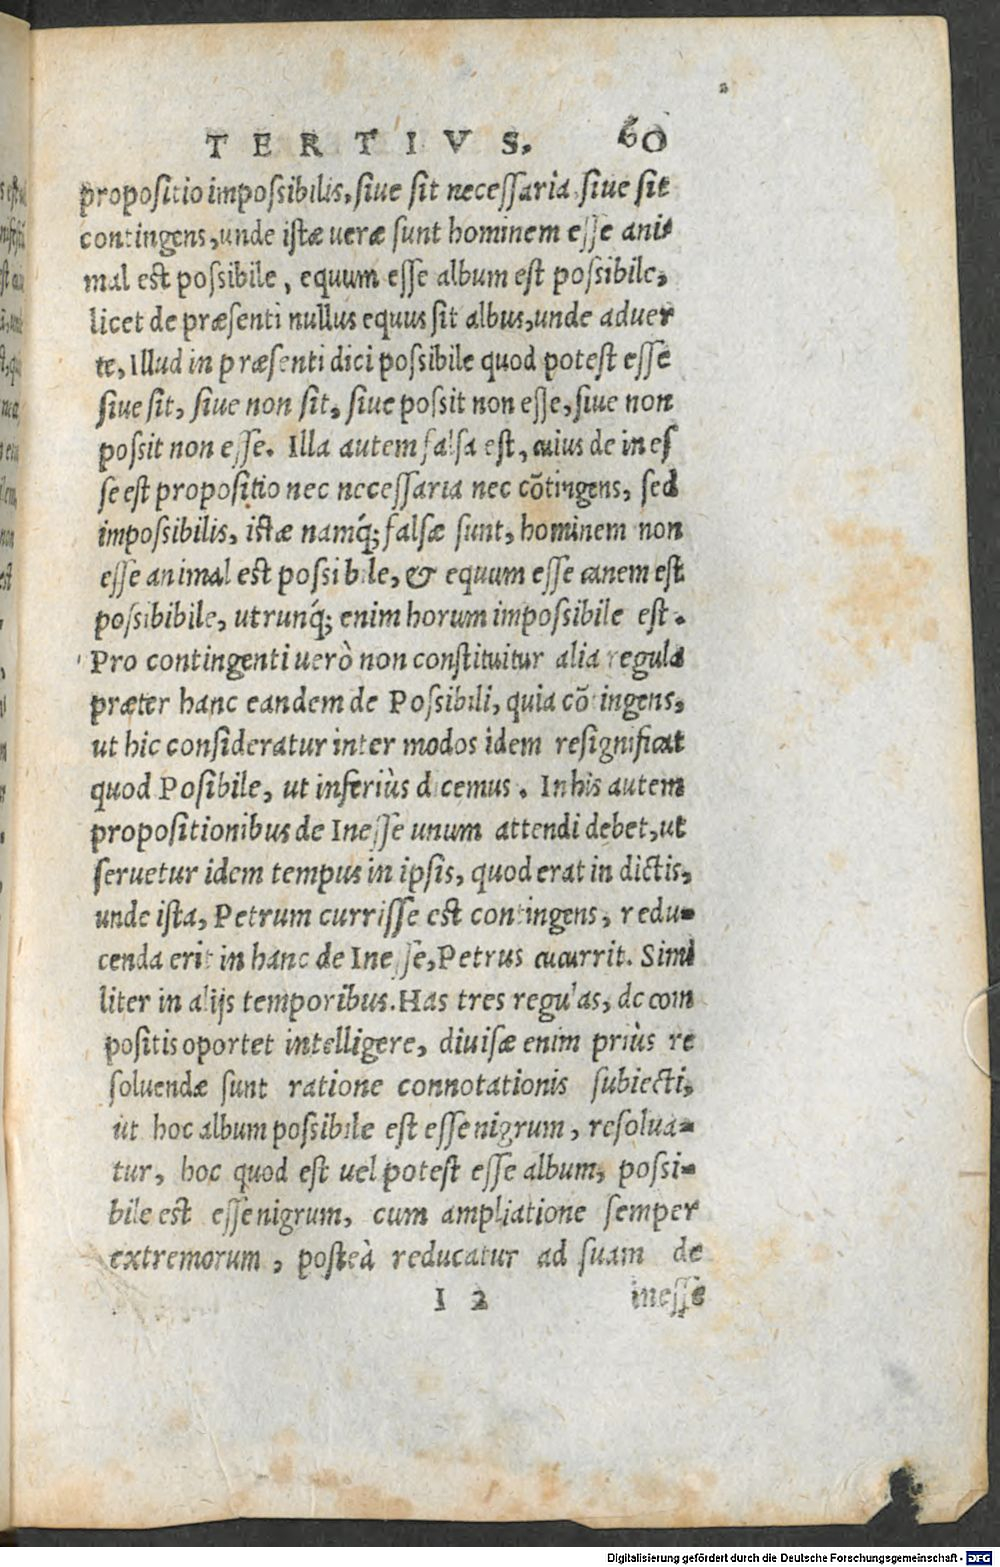 TERTIVS. 60
propositio impossibilis, siue sit necessaria siue sit
contingens, unde istæ ueræ sunt hominem esse ani-
mal est possibile, equum esse album est possibile,
licet de præsenti nullus equus sit albus, unde aduer
te, Illud in præsenti dici possibile quod potest esse
siue sit, siue non sit, siue possit non esse, siue non
possit non esse. Illa autem falsa est, cuius de ines
se est propositio nec necessaria nec cõtingens, sed
impossibilis, istæ namq́; falsæ sunt, hominem non
esse animal est possibile, & equum esse canem est
possibibile, utrunq́; enim horum impossibile est.
Pro contingenti uerò non constituitur alia regula
præter hanc eandem de Possibili, quia cõtingens,
ut hic consideratur inter modos idem resignificat
quod Posibile, ut inferiùs dicemus. In his autem
propositionibus de Inesse unum attendi debet, ut
seruetur idem tempus in ipsis, quod erat in dictis,
unde ista, Petrum currisse est contingens, redu-
cenda erit in hanc de Inesse, Petrus cucurrit. Simi
liter in alijs temporibus. Has tres regulas, de com
positis oportet intelligere, diuisæ enim priùs re
soluendæ sunt ratione connotationis subiecti,
ut hoc album possibile est esse nigrum, resolua-
tur, hoc quod est uel potest esse album, possi-
bile est esse nigrum, cum ampliatione semper
extremorum, posteà reducatur ad suam de
I 2 inesse
Digitalisierung gefördert durch die Deutsche Forschungsgemeinschaft - DFG